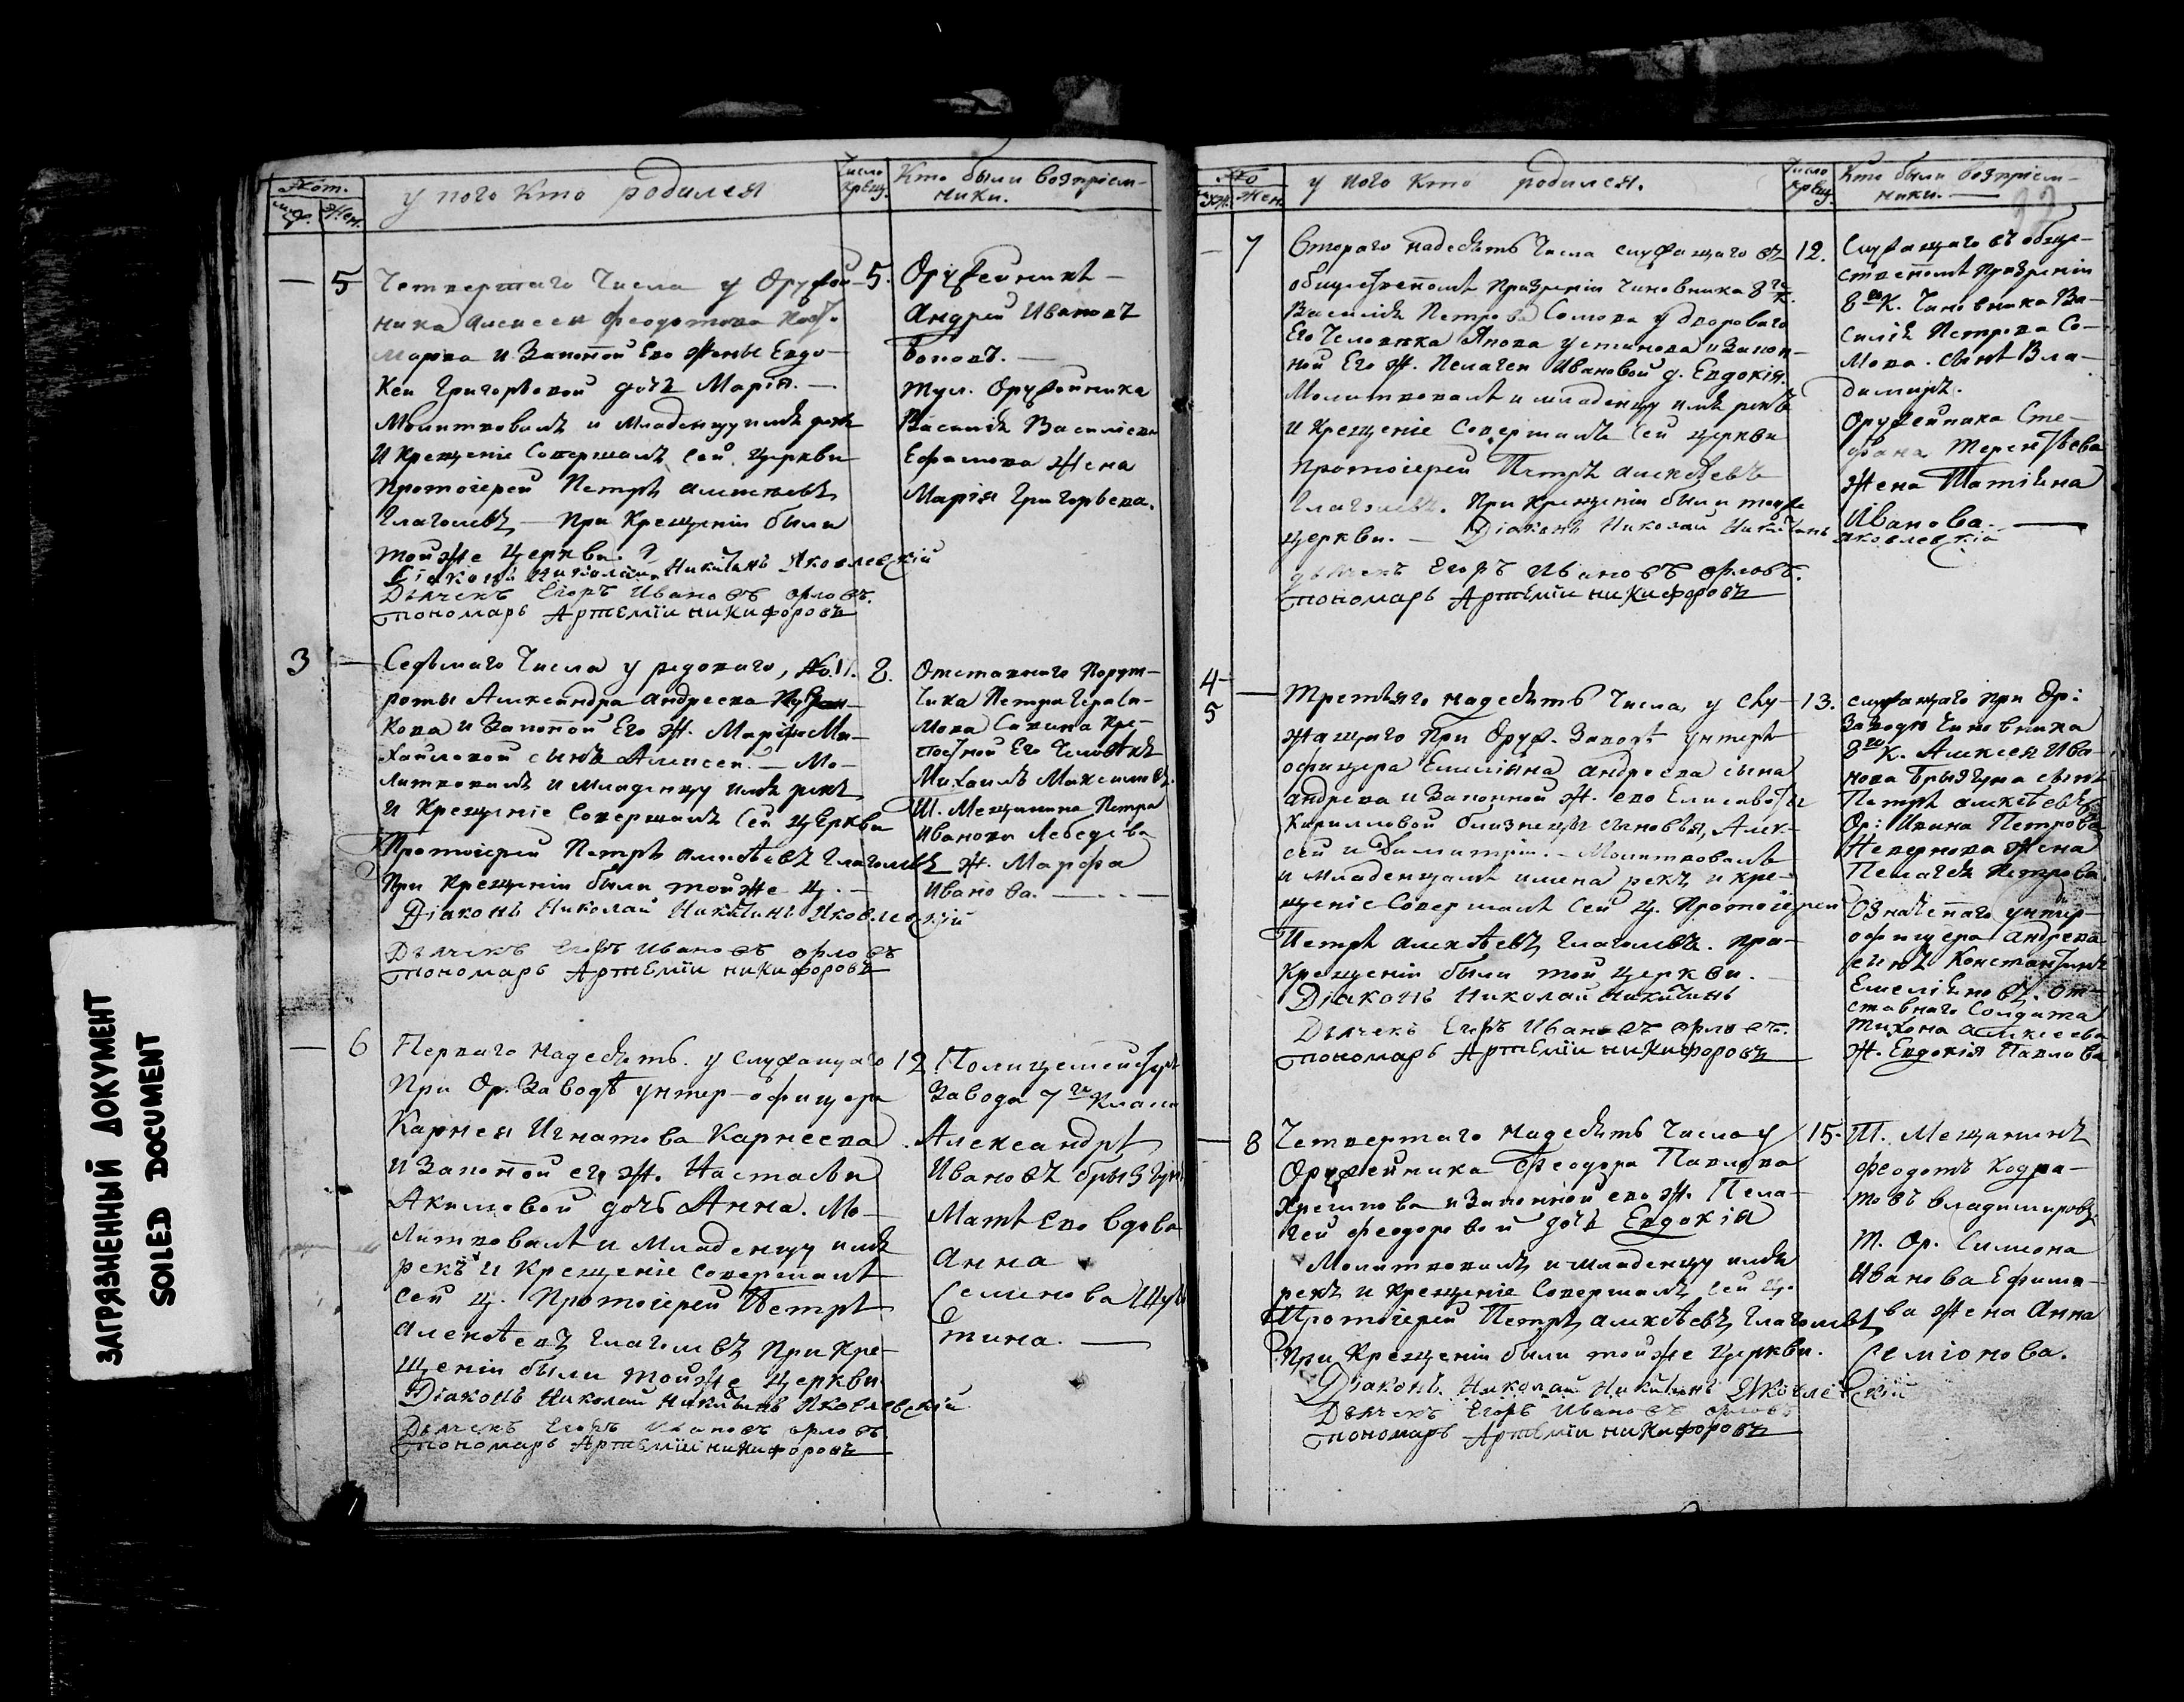 ЗАГРЯЗНЕННЫЙ ДОКУМЕНТ
SOILED DOCUMENT
Жен.
у кого кто родился
Число крещ.
Кто были воспріем-
ники.
— 5
Четвертаго числа у Оружей-
ника Алексея Феодотова
и законной его жены Евдо-
кеи Григорьевой дочь Марія. —
Молитвовалъ и младенцу имя
и крещеніе совершалъ сей церкви
Протоіерей Петръ Алексѣевъ
Глаголевъ — При крещеніи были
тойже церкви.
Діаконъ Николай Никитинъ Яковлевскій
Дьячекъ Егоръ Ивановъ орловъ.
пономарь Артемiи никифоровъ
5.
Оружейникъ —
Андрей Ивановъ
Тул. Оружейника
Василія Васильева
Ефимова жена
Марія Григорьева.
3 —
Седьмаго числа у рядоваго, No.
роты Александра Андреева
кова и законной его ж. Маріи Ми-
хайловой сынъ Алексей. — Мо-
литвовалъ и младенцу имя рекъ
и крещеніе совершалъ сей церкви
Протоіерей Петръ Алексѣевъ Глаголевъ
При крещеніи были тойже ц. —
Діаконъ Николай Никитинъ Яковлевскій
Дьячекъ Егоръ Ивановъ орловъ
пономарь Артемiи никифоровъ
8.
Отставнаго порут-
чика Петра Гераси-
мова Савина кре-
постной его человѣкъ
Михаилъ Максимовъ.
Мещанина Петра
Иванова Лебедева
ж. Марфа
Иванова. —
— 6
Перваго надесять у служащаго
при Ор. заводѣ унтер-офицера
Карнея Игнатова Карнеева
и законной его ж. Настасьи
Акимовой дочь Анна. Мо-
литвовалъ и младенцу имя
рекъ и крещеніе совершалъ
сей ц. Протоіерей Петръ
Алексѣевъ Глаголевъ При кре-
щеніи были тойже церкви
Діаконъ Николай Никитинъ Яковлевскій
Дьячекъ Егоръ Ивановъ орловъ
пономарь Артемiи никифоровъ
12
Полицеймейстеръ
завода 7го класса
Александръ
Ивановъ
Мать его вдова
Анна
Семенова
тина. —
Жен.
у кого кто родился.
Число крещ.
Кто были воспріем-
ники. —
— 7
Втораго надесять числа служащаго въ
общественномъ призреніи чиновника 8го к.
Василія Петрова Сомова у двороваго
его человѣка Устинова и закон-
ной его ж. Пелагеи Ивановой д. Евдокія.
Молитвовалъ и младенцу имя рекъ
и крещеніе совершалъ сей церкви
протоіерей Петръ Алексѣевъ
Глаголевъ. При крещеніи были тойже
церкви. — Діаконъ Николай Никитинъ Яковлевскій
дьячекъ Егоръ Ивановъ орловъ.
пономарь Артемiи никифоровъ
12.
Служащаго въ обще-
ственномъ призреніи
8го К. чиновника Ва-
силія Петрова Со-
мова сынъ Вла-
димиръ.
Оружейника Сте-
фана Терентьева
жена Татіяна
Иванова. —
4 —
5
Третьяго надесять числа, у слу-
жащаго при Оруж. заводѣ унтеръ
офицера Емеліяна Андреева сына
Андреева и законной ж. его Елисаветы
Кирилловой близнецы сыновья, Алек-
сей и Димитрій. — Молитвовалъ
и младенцамъ имена рекъ и кре-
щеніе совершалъ сей ц. Протоіерей
Петръ Алексѣевъ Глаголевъ. при
крещеніи были той церкви.
Діаконъ Николай Никитинъ
Дьячекъ Егоръ Ивановъ орловъ.
пономарь Артемiи никифоровъ
13.
служащаго при Ор:
заводѣ чиновника
8го К. Алексея Ива-
нова сынъ
Петръ Алексѣевъ
Ор: Петрова
жена
Пелагея Петрова
Означеннаго унтер-
офицера Андреева
сынъ Константинъ
Емеліяновъ. От-
ставнаго Солдата
Тихона Алексеева
ж. Евдокія Павлова
— 8
Четвертаго надесять числа у
Оружейника Феодора Павлова
и законной его ж. Пела-
геи Феодоровой дочь Евдокія
Молитвовалъ и младенцу имя
рекъ и крещеніе совершалъ сей ц.
Протоіерей Петръ Алексѣевъ Глаголевъ
При крещеніи были тойже церкви.
Діаконъ Николай Никитинъ Яковлевскій
Дьячекъ Егоръ Ивановъ орловъ
пономарь Артемiи никифоровъ
15.
Мещанинъ
Феодотъ Кодра-
товъ Владимировъ
Т. Ор. Симиона
Иванова Ефимо-
ва жена Анна
Семіонова.